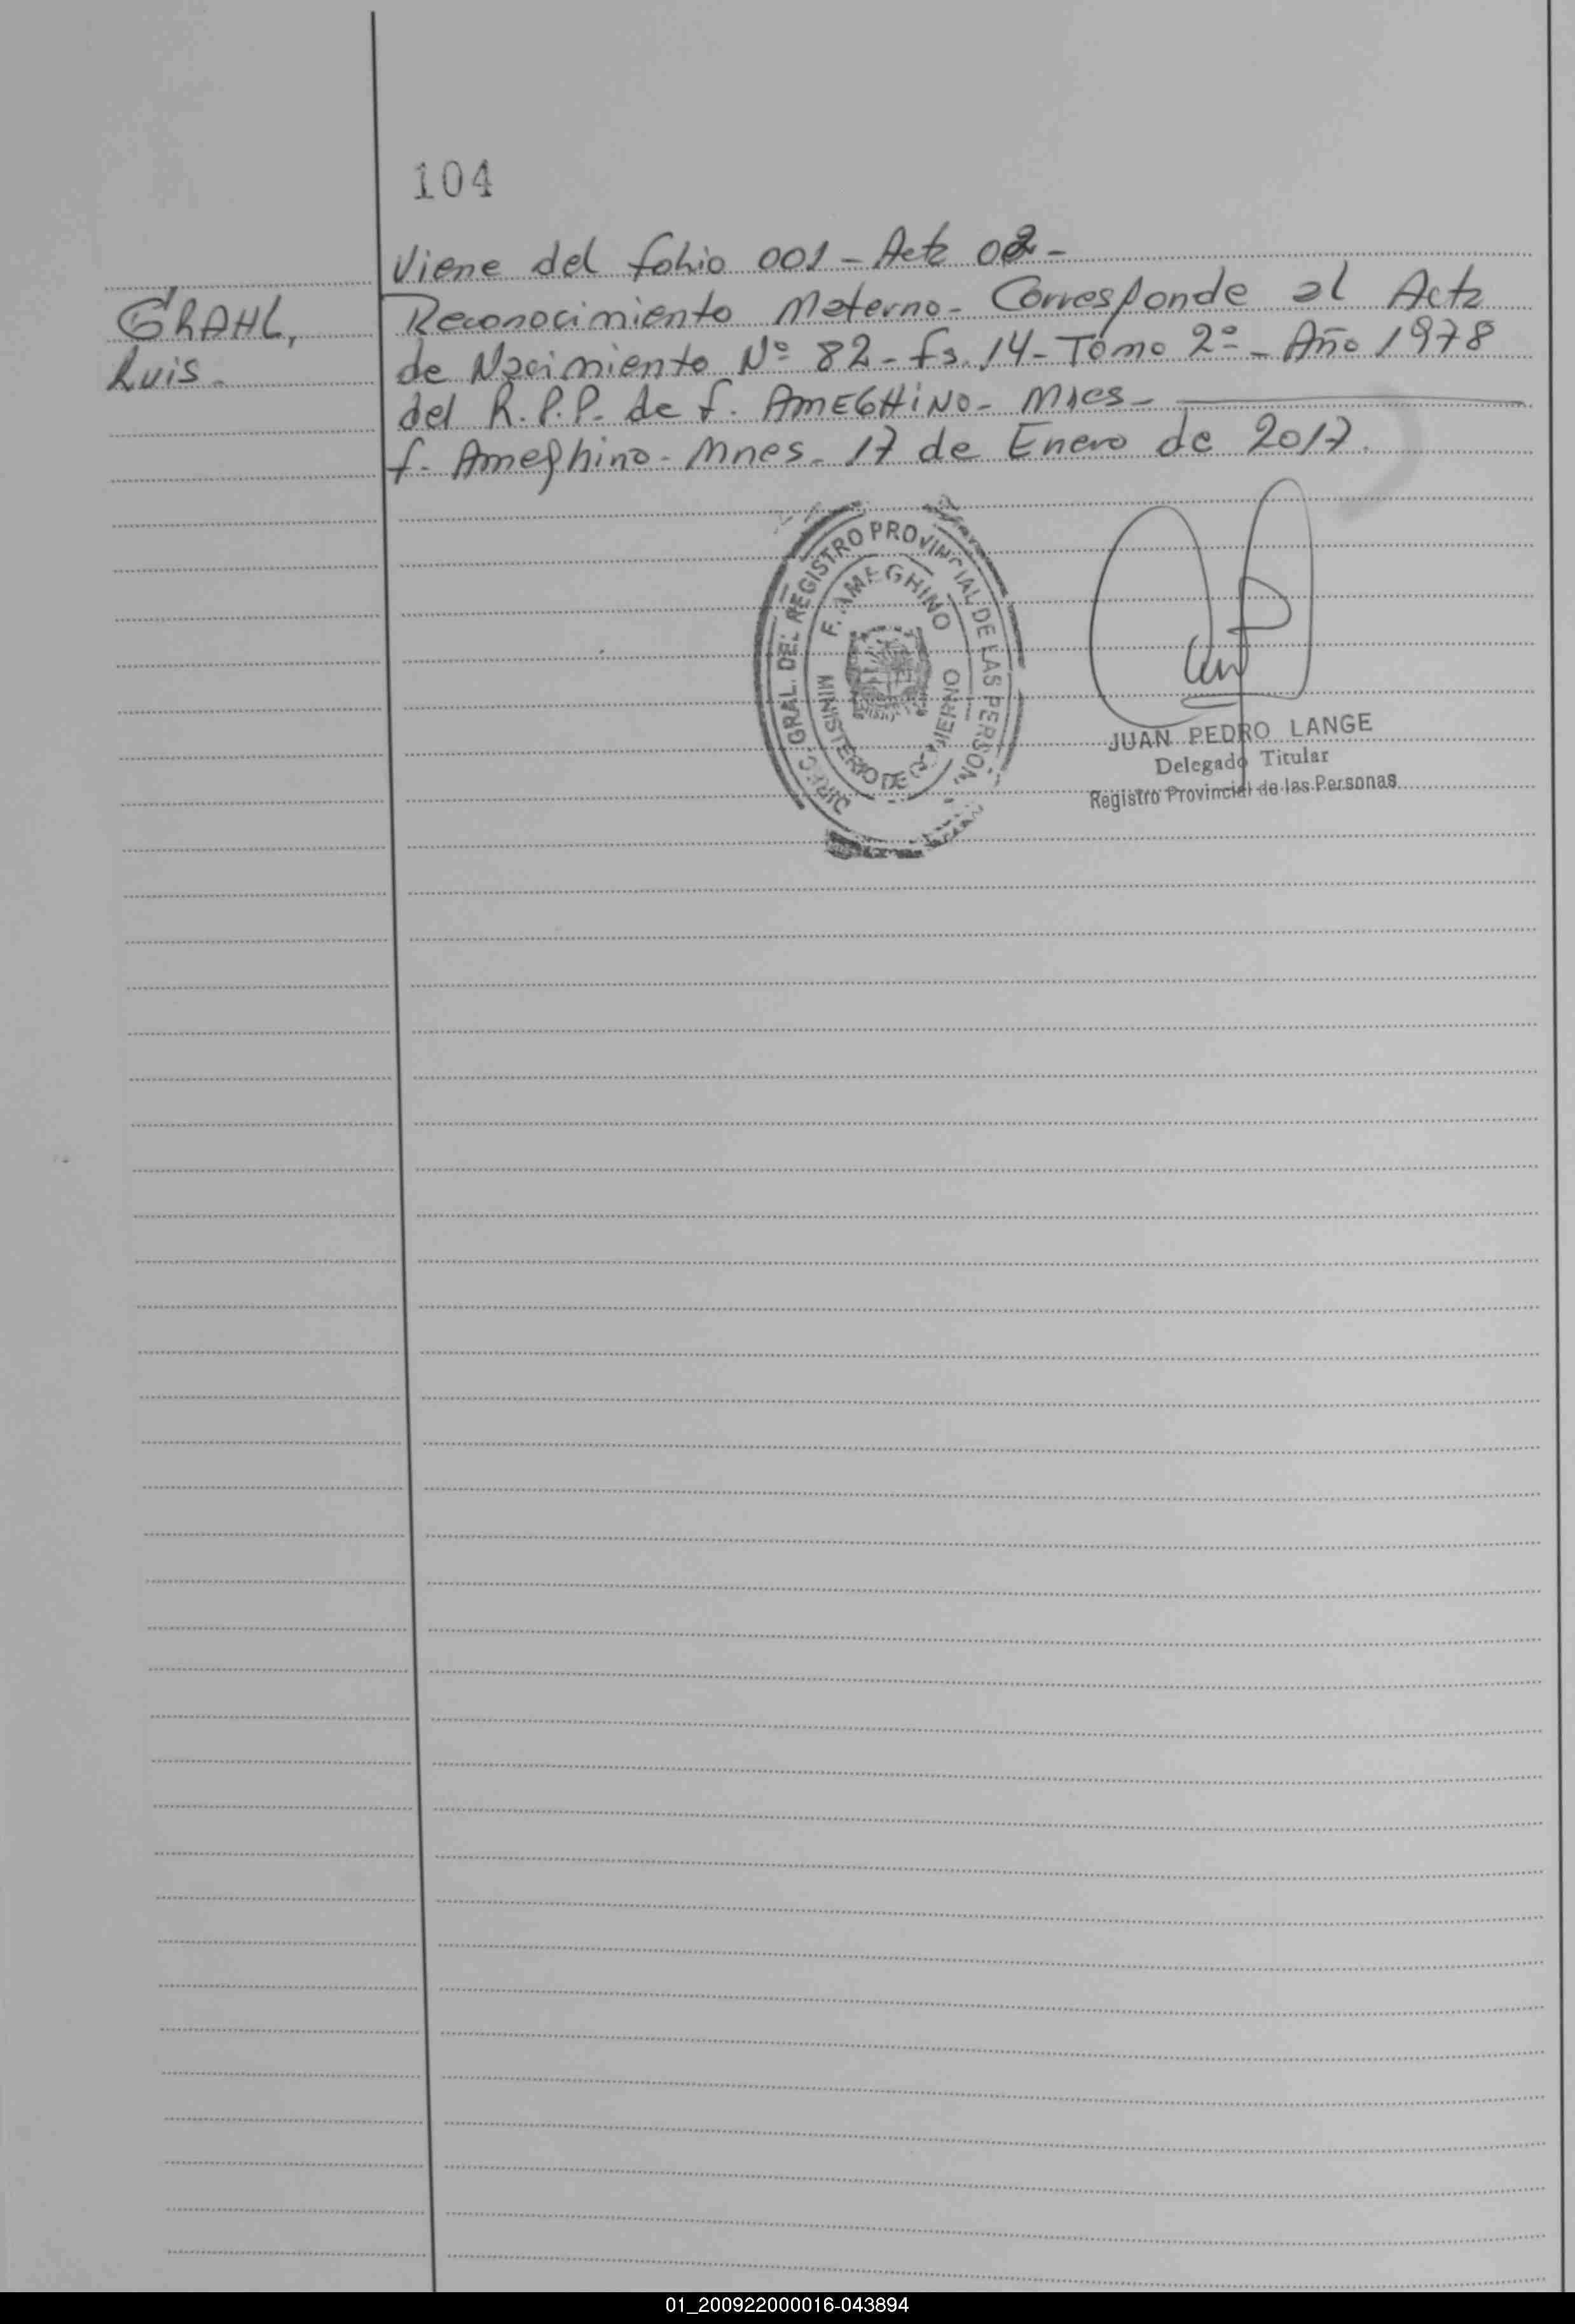 104
Viene del folio 001 - Acta 02 -
GRAHL,
Reconocimiento Materno - Corresponde al Acta
Luis -
de Nacimiento Nº 82 - fs. 14 - Tomo 2º - Año 1978
del R.P.P. de f. AMEGHINO - Mnes -
f. Ameghino - Mnes - 17 de Enero de 2017.
DIREC. GRAL. DEL REGISTRO PROVINCIAL DE LAS PERSON.
F. AMEGHINO
MINISTERIO DE GOBIERNO
JUAN PEDRO LANGE
Delegado Titular
Registro Provincial de las Personas
01_200922000016-043894